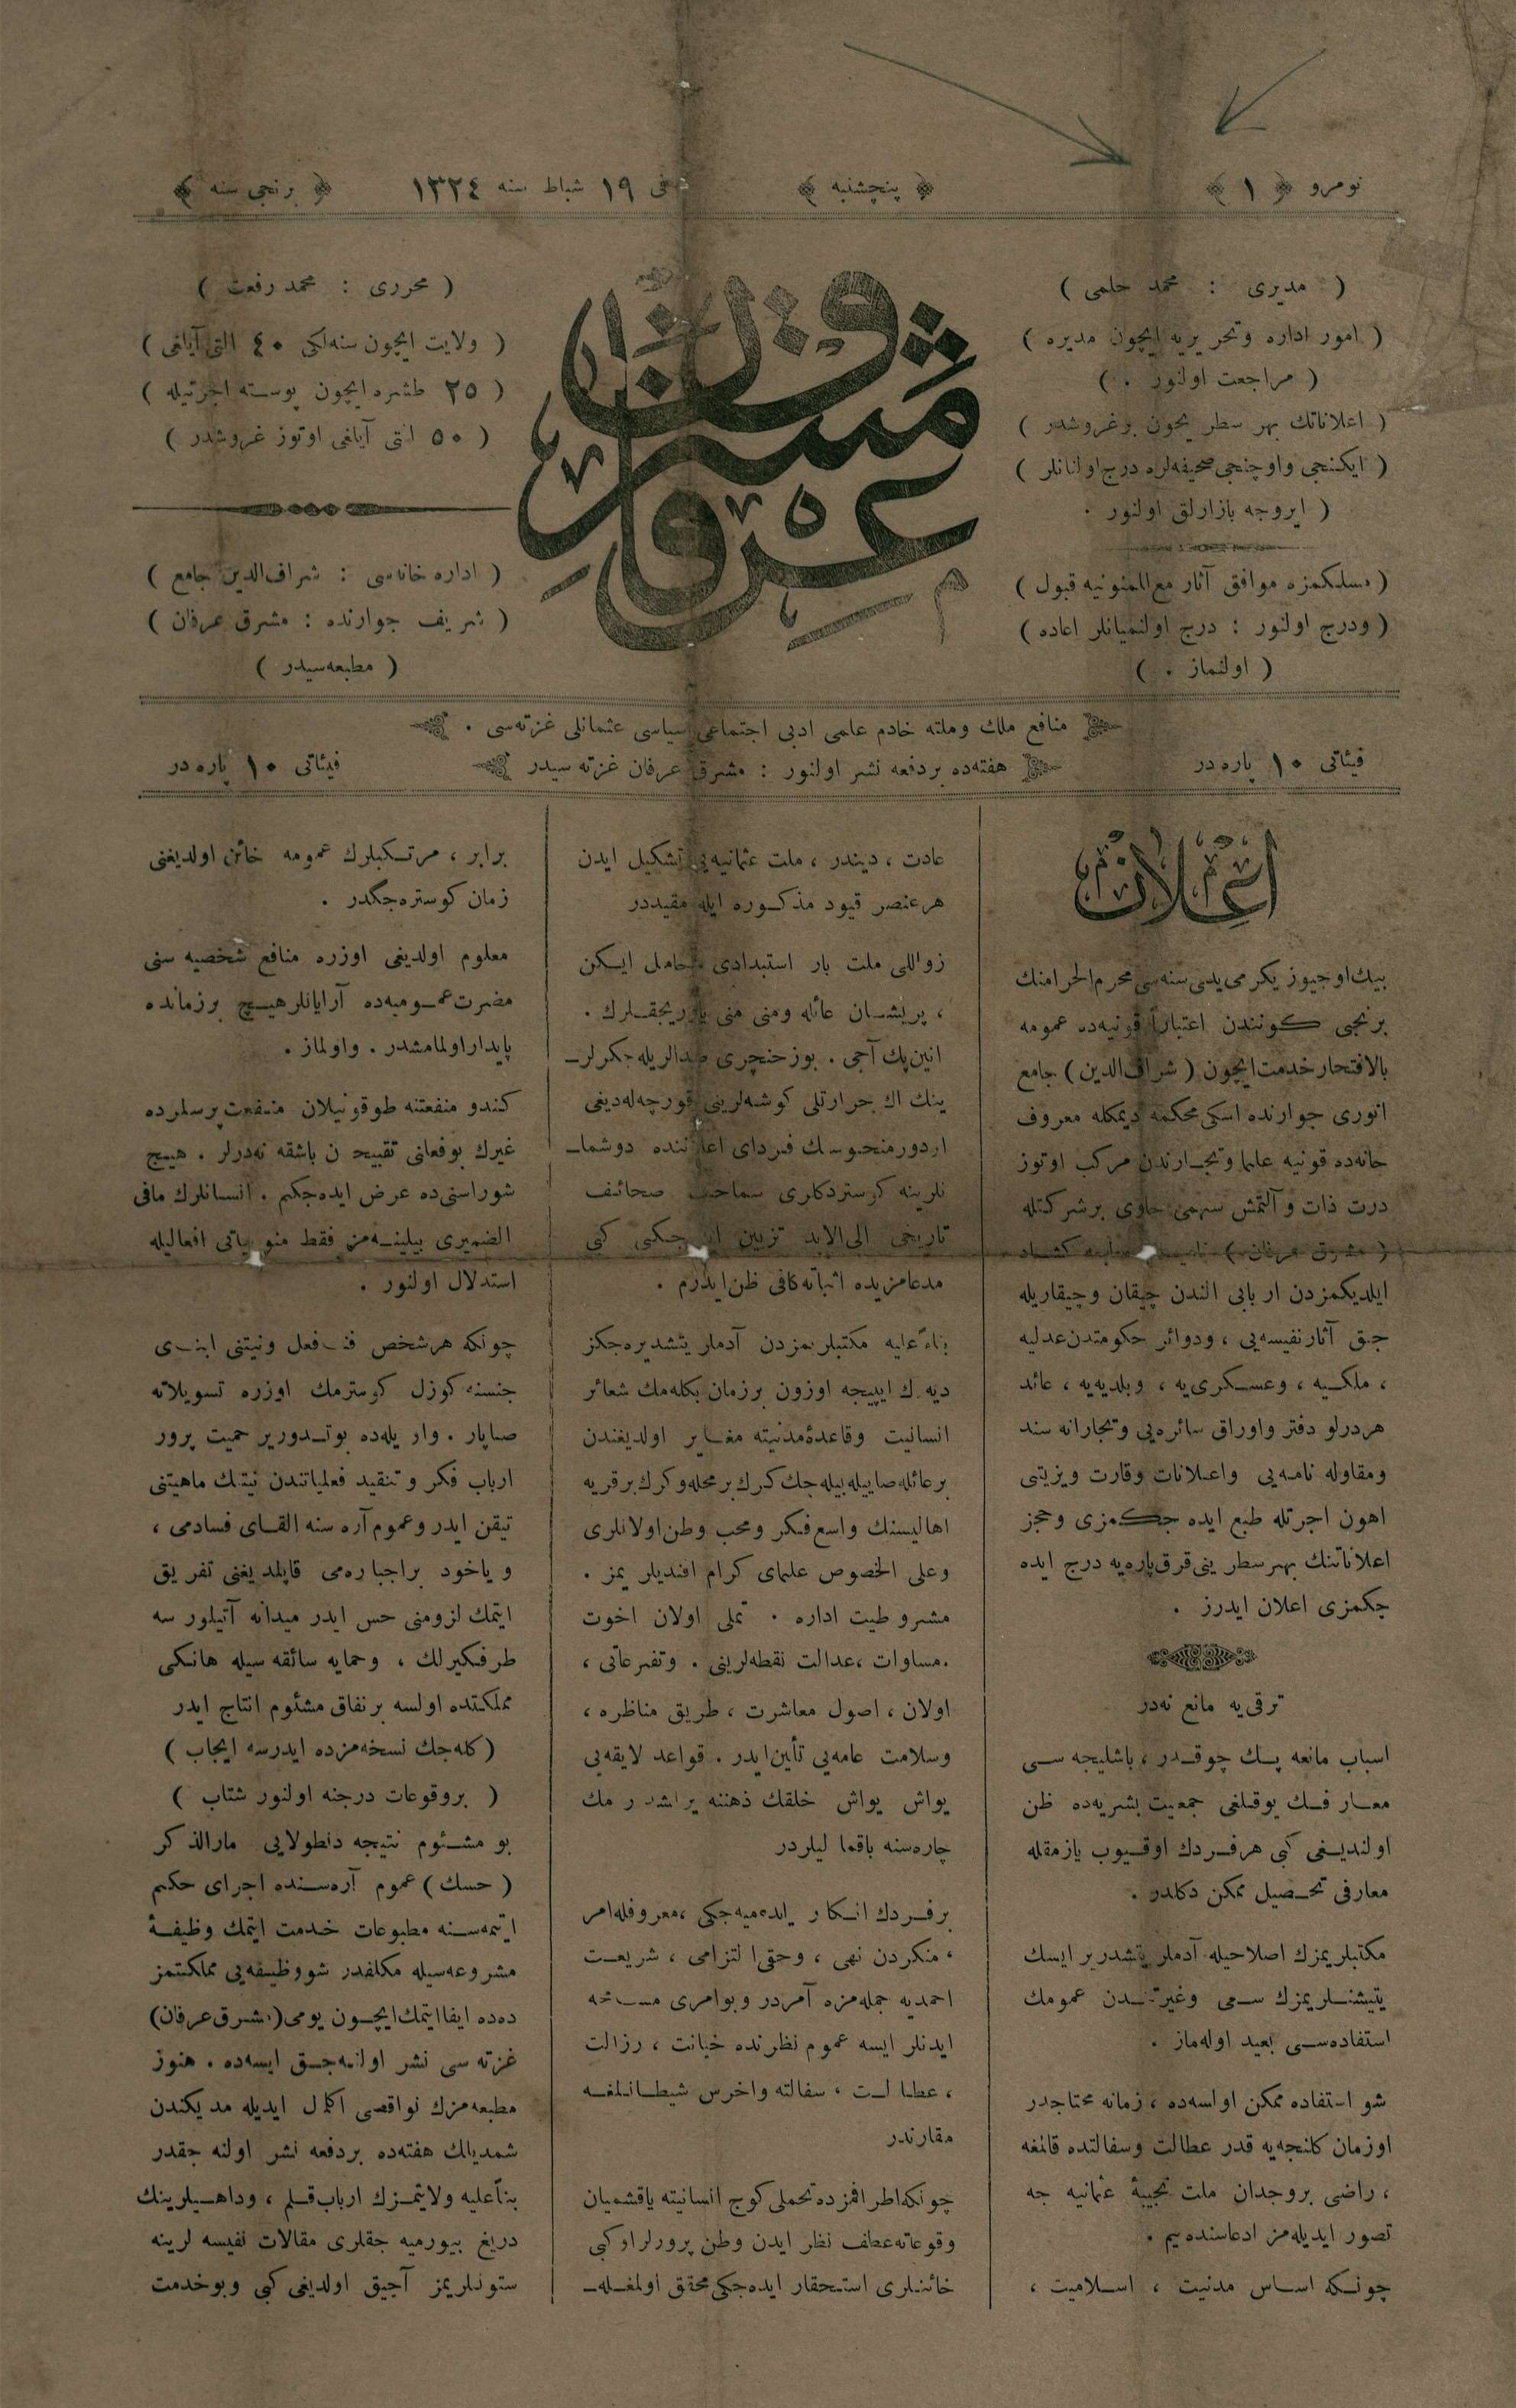 نومرو ﴿ ١ ﴾
﴿ پنچشنبه ﴾
فی ١٩ شباط سنه ١٣٢٤
﴿ برنجی سنه ﴾
( مدیری : محمد حلمی )
( امور اداره وتحریریه ایچون مدیره )
( مراجعت اولنور . )
( اعلاناتك بهر سطر یچون برغروشدر )
( ایكنجی واوچنجی صحیفه‌لره درج اولنانلر )
( ایروجه بازارلق اولنور .
( مسلكمزه موافق آثار مع الممنونیه قبول )
( ودرج اولنور : درج اولنمیانلر اعاده )
( اولنماز . )
مشرق عرفان
( محرری : محمد رفعت )
( ولایت ایچون سنه‌لكی ٤٠ التی آیلغی )
( ٢٥ طشره ایچون پوسته اجرتیله )
( ٥٠ التی آیلغی اوتوز غروشدر )
( اداره خانه‌سی : شراف‌الدین جامع )
( شریف جوارنده : مشرق عرفان )
( مطبعه‌سیدر )
منافع ملك وملته خادم علمی ادبی اجتماعی سیاسی عثمانلی غزته‌سی .
فیئاتی ١٠ پاره در
هفته‌ده بردفعه نشر اولنور : مشرق عرفان غزته سیدر
فیئاتی ١٠ پاره در
اعلان
بیك‌اوجیوز یكرمی‌یدی سنه‌سی محرم‌الحرامنك
برنجی كونندن اعتباراً قونیه‌ده عمومه
بالافتحار خدمت‌ایچون ( شراف‌الدین ) جامع
انوری جوارنده اسكی محكمه دیمكله معروف
خانه‌ده قونیه علما وتجارندن مركب اوتوز
درت ذات و آلتمش سهمی حاوی برشركتله
( مشرق عرفان ) كشاد
ایلدیكمزدن اربابی الندن چیقان وچیقاریله
جق آثار نفیسه‌یی ، ودوائر حكومتدن عدلیه
، ملكیه ، وعسكری‌یه ، وبلدیه‌یه ، عائد
هردرلو دفتر واوراق سائره‌یی وتجارانه سند
ومقاوله نامه‌یی واعلانات وقارت ویزیتی
اهون اجرتله طبع ایده جكمزی وحجز
اعلاناتنك بهر سطرینی قرق پاره‌یه درج ایده
جكمزی اعلان ایدرز .
ترقی‌یه مانع نه‌در
اسباب مانعه پك چوقدر ، باشلیجه سی
معارفك یوقلغی جمعیت بشریه‌ده ظن
اولندیغی كبی هرفردك اوقیوب یازمقله
معارفی تحصیل ممكن دكلدر .
مكتبلریمزك اصلاحیله آدملر یتشدریر ایسك
یتیشنلریمزك سعی وغیرتندن عمومك
استفاده‌سی بعید اوله‌ماز .
شو استفاده ممكن اولسه‌ده ، زمانه محتاجدر
اوزمان كلنجه‌یه قدر عطالت وسفالتده قالمغه
، راضی بروجدان ملت نجیبهٔ عثمانیه جه
تصور ایدیله‌مز ادعاسنده‌یم .
چونكه اساس مدنیت ، اسلامیت ،
عادت ، دیندر ، ملت عثمانیه‌یی تشكیل ایدن
هرعنصر قیود مذكوره ایله مقیددر
زواللی ملت بار استبدادی حامل ایكن
، پریشان عائله ومنی منی یاوریجقلرك .
انین پك آجی . بوزحنچری صدالریله جكرلر‌ـ
ینك اك حرارتلی كوشه‌لرینی قورچه‌له‌دیغی
فردای دوشما‌ـ
نلرینه كوستردكلری سماحت صحائف
تاریخی الی‌الابد تزیین ایده‌جكی كبی
مدعامزیده اثباته كافی ظن‌ایدرم .
بناءً علیه مكتبلریمزدن آدملر یتشدیره‌جكز
دیه‌رك اییجه اوزون برزمان بكله‌مك شعائر
انسانیت وقاعدهٔ مدنیته مغایر اولدیغندن
برعائله صاییله‌بیله‌جك كرك برمحله وكرك برقریه
اهالیسنك واسع فكر ومحب وطن اولانلری
وعلی الخصوص علمای كرام افندیلریمز .
مشروطیت اداره . تملی اولان اخوت
.مساوات ، عدالت نقطه‌لرینی . وتفرعاتی ،
اولان ، اصول معاشرت ، طریق مناظره ،
وسلامت عامه‌یی تأمین‌ایدر . قواعد لایقه‌یی
یواش یواش خلقك ذهننه یرلشدیرمك
چاره‌سنه باقملیلردر
برفردك انكار ایده‌میه‌جكی ، معروفله امر
، منكردن نهی ، وحق‌ا لتزامی ، شریعت
احمدیه جمله‌مزه آمردر وبوامری
ایدنلر ایسه عموم نظرنده خیانت ، رزالت
، عطالت ، سفالته واخرس شیطانلغه
مقارندر
چونكه‌اطرافمزده تحملی كوج انسانیته یاقشمیان
وقوعاته عطف نظر ایدن وطن پرورلر او كبی
خائنلری استحقار ایده‌جكی محقق اولمغله‌ـ
برابر ، مرتكبلرك عمومه خائن اولدیغنی
زمان كوستره‌جكدر .
معلوم اولدیغی اوزره منافع شخصیه سنی
مضرت عمومیه‌ده آرایانلر هیچ برزمانده
پایدار اولمامشدر . واولماز .
كندو منفعتنه طوقونیلان منفعت‌پرسلرده
غیرك بوفعلنی تقبیحدن باشقه نه‌درلر . هیچ
شوراسنی‌ده عرض ایده‌جكم . انسانلرك مافی
الضمیری بیلینه‌مز فقط منویاتی افعالیله
استدلال اولنور .
چونكه هرشخص فنا فعل ونیتنی ابنای
جنسنه كوزل كوسترمك اوزره تسویلاته
صاپار . وار یله‌ده بوتدوریر حمیت پرور
ارباب فكر وتنقید فعلیاتندن نیتك ماهیتنی
تیقن ایدر وعموم آره سنه القای فسادمی ،
ویاخود براجباره‌می قاپلدیغنی تفریق
ایتمك لزومنی حس ایدر میدانه آتیلور سه
طرفكیرلك ، وحمایه سائقه سیله هانكی
مملكتده اولسه برنفاق مشئوم انتاج ایدر
( كله‌جك نسخه‌مزده ایدرسه ایجاب )
( بروقوعات درجنه اولنور شتاب )
بو مشئوم نتیجه دنطولایی مارالذكر
( حسك ) عموم آره‌سنده اجرای حكم
ایتمه‌سنه مطبوعات خدمت ایتمك وظیفهٔ
مشروعه‌سیله مكلفدر شووظیفه‌یی مملكتمز
ده‌ده ایفا ایتمك‌ایچون یومی (مشرق عرفان)
غزته سی نشر اولنه‌جق ایسه‌ده . هنوز
مطبعه‌مزك نواقصی اكمال ایدیله مدیكندن
شمدیلك هفته‌ده بردفعه نشر اولنه جقدر
بناً علیه ولایتمزك ارباب قلم ، وداهیلرینك
دریغ بیورمیه جقلری مقالات نفیسه لرینه
ستونلریمز آجیق اولدیغی كبی وبوخدمت